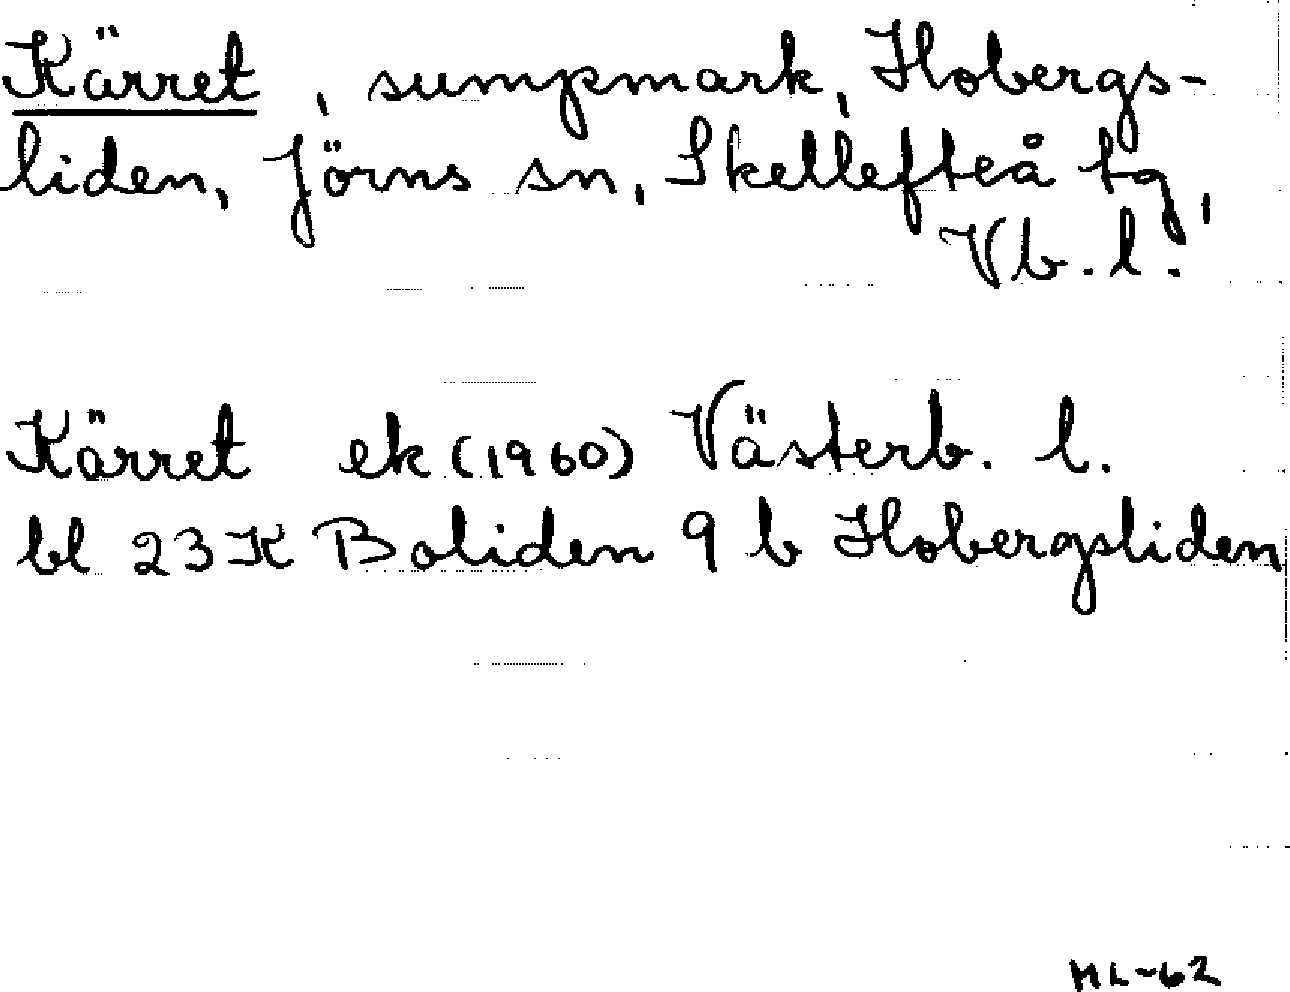 Kärret, sumpmark, Hobergs-
liden, Jörns sn, Skellefteå tg,
Vb. l.
Kärret ek (1960) Västerb. l.
bl 23 K Boliden 9 b Hobergsliden
ML-62